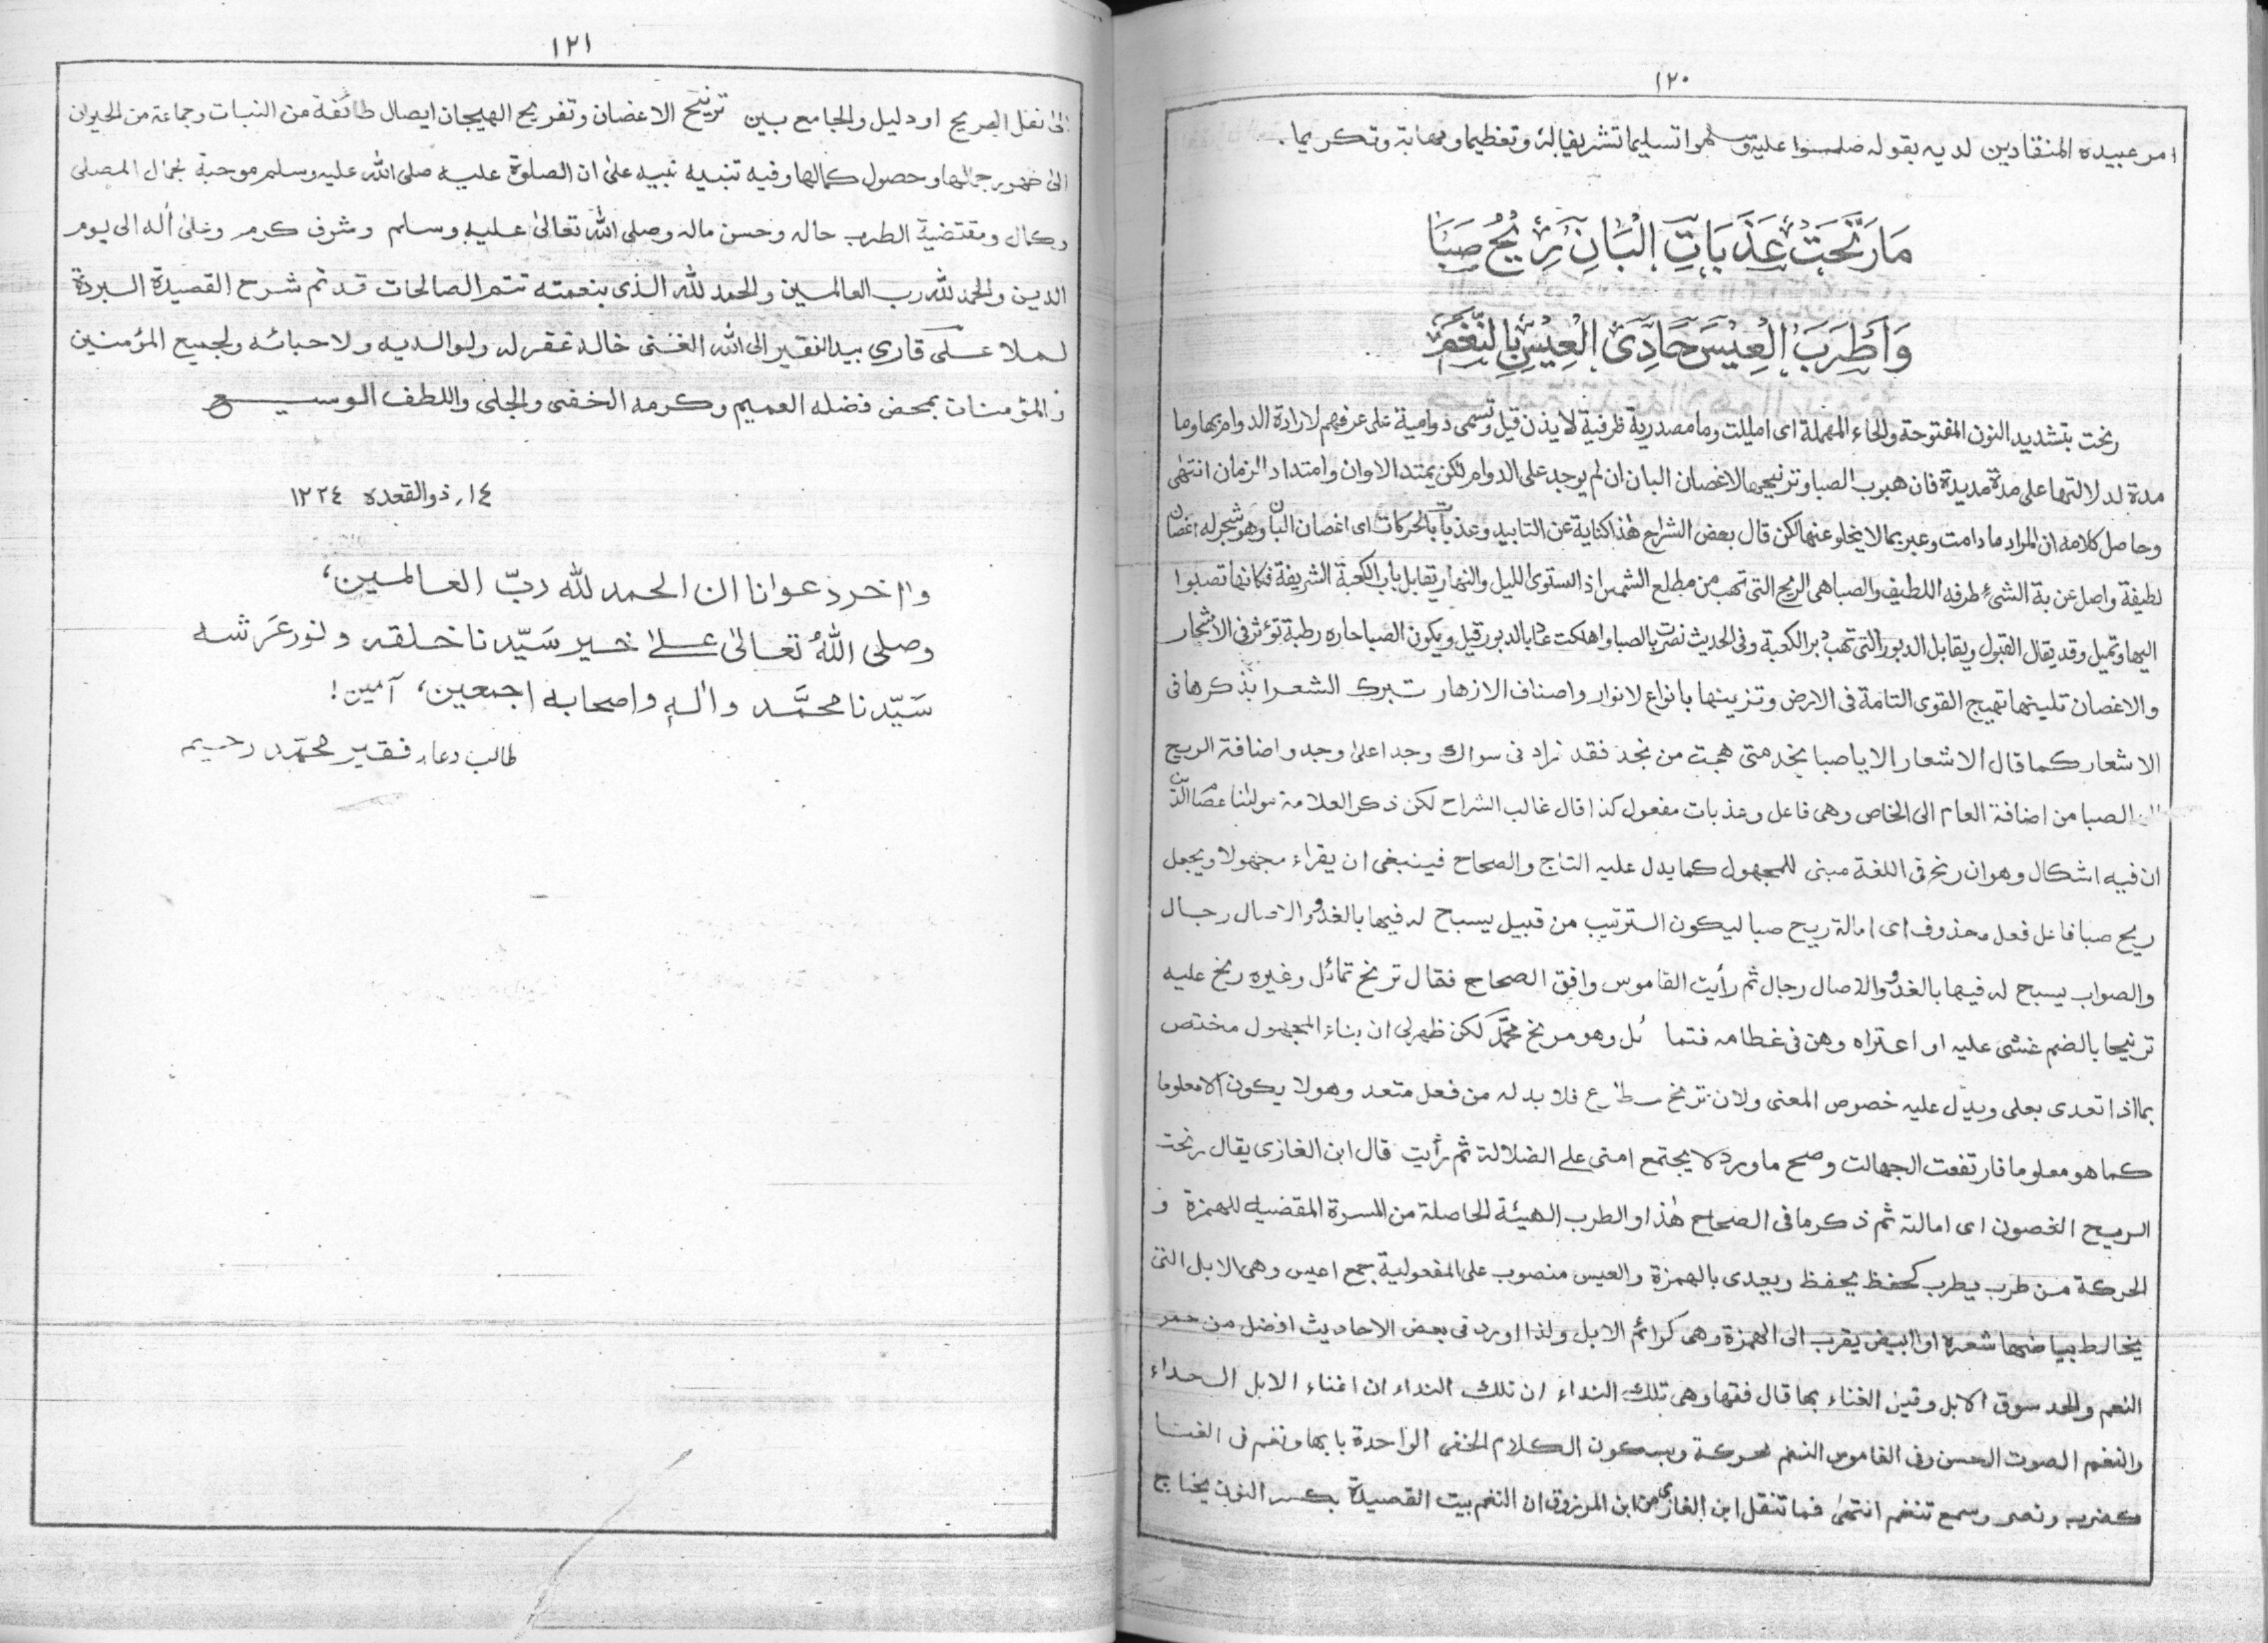 ١٢٠
امر عبيده المنقادين لديه بقوله صلوا عليه وسلموا تسليما تشريفا له وتعظيما ومهابة وتكريما.
مَا رَنَّحَتْ عَذَبَاتِ الْبَانِ رِيْحُ صَبَا
وَاَطْرَبَ الْعِيْسَ حَادِىَ الْعِيْسِ بِالنَّغَمِ
رنحت بتشديد النون المفتوحة والحاء المهملة اى امليلت وما مصدرية ظرفية لا يذن قيل وتسمى دوامية على عرفهم لارادة الدوام بها وما
مدة لدلالتها على مدة مديدة فان هبوب الصبا وترنيحها لاغصان البان ان لم يوجد على الدوام لكن يمتد الاوان وامتداد الزمان انتهى
وحاصل كلامه ان المراد ما دامت وعبر بما لا يخلو عنها لكن قال بعض الشراح هذا كناية عن التابيد وعذبات بالحركات اى اغصان البان وهو شجر له اغصان
لطيفة واصل عذبة الشئ طرفه اللطيف والصبا هى الريح التى تهب من مطلع الشمس اذ الستوى الليل والنهار يقابل باب الكعبة الشريفة فكانها تصبوا
اليها وتميل وقد يقال القبول ويقابل الدبور التى تهب دبر الكعبة وفى الحديث نصرت بالصبا واهلكت عاد بالدبور قيل ويكون الصبا حاره رطبة تؤثر فى الاشجار
والاغصان تلينها تهيج القوى التامة فى الارض وتزينها بانواع لانوار واصناف الازهار تبرك الشعرا بذكرها فى
الاشعار كما قال الاشعار الا يا صبا نجد متى هجت من نجد فقد زاد نى سواك وجدا على وجد واضافة الريح
الى الصبا من اضافة العام الى الخاص وهى فاعل وعذبات مفعول كذا قال غالب الشراح لكن ذكر العلامة مولٰنا عصام الدين
ان فيه اشكال وهو ان رنح فى اللغة مبنى للمجهول كما يدل عليه التاج والصحاح فينبغى ان يقراء مجهولا ويجعل
ريح صبا فاعل فعل محذوف اى امالة ريح صبا ليكون الترتيب من قبيل يسبح له فيها بالغدو والاصال رجال
والصواب يسبح له فيها بالغدو والاصال رجال ثم رأيت القاموس وافق الصحاح فقال ترنح تمائل وغيره رنح عليه
ترنيحا بالضم غشى عليه او اعتراه وهن فى عظامه فتما ئل وهو مرنح محمّد لكن ظهر لى ان بناء المجهول مختص
بما اذا تعدى بعلى ويدل عليه خصوص المعنى ولان ترنح مطاوع فلا بد له من فعل متعد وهو لا يكون الا معلوما
كما هو معلوم فارتفعت الجهالت وصح ما ورد لا يجتمع امتى على الضلالة ثم رأيت قال ابن الغازى يقال رنحت
الريح الغصون اى امالته ثم ذكر ما فى الصحاح هٰذا والطرب الهيئة الحاصلة من المسرة المقضيه للهمزة و
الحركة من طرب يطرب كحفظ يحفظ ويعدى بالهمزة والعيس منصوب على المفعولية جمع اعيس وهى الابل التى
يخالط بياضها شعره او ابيض يقرب الى الهمزة وهى كرائم الابل ولذا اورد فى بعض الاحاديث افضل من حمر
النعم والحد سوق الابل وقين الغناء بها قال فقها وهى تلك النداء ان تلك النداء ان اغناء الابل الحداء
والنغم الصوت الحسن وفى القاموس النغم محركة وبسكون الكلام الخفى الواحدة بابها ونغم فى الغنا
كضرب ونصر وسمع تنغم انتهىٰ فما تنقل ابن الغازى من ابن المرزوق ان النغم بيت القصيدة بكسر النون يحتاج
١٢١
الى نقل الصريح او دليل والجامع بين ترنيح الاغصان وتفريح الهيجان ايصال طائفة من النبات وجماعة من الحيوان
الى ظهور جمالها وحصول كمالها وفيه تنبيه نبيه على ان الصلوٰة عليه صلى الله عليه وسلم موجبة لجمال المصلى
وكمال ومقتضية الطرب حاله وحسن ماله وصلى الله تعالىٰ عليه وسلم وشرف كرم وعلىٰ أله الى يوم
الدين والحمد لله رب العالمين والحمد لله الذى بنعمته تتم الصالحات قد تم شرح القصيدة البردة
لملا على قارى بيد الفقير الى الله الغنى خالد غفر له ولوالديه ولاحبائه ولجميع المؤمنين
والمؤمنات بمحض فضله العميم وكرمه الخفى والجلى واللطف الوسيع
١٤, ذوالقعده ١٢٢٤
وآخر دعوانا ان الحمد لله ربّ العالمين،
وصلى اللهُ تعالىٰ علىٰ خير سَيّدنا خلقه ونور عَرشه
سَيّدنا محمَّد واٰلهٖ واصحابه اجمعين، آمين!
طالب دعا, فقير محمّد رحيم